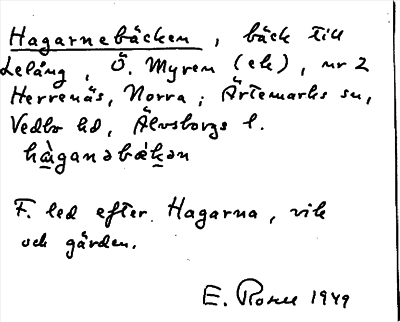 Hagarnebäcken, bäck till
Lelång, Ö. Myren (ek), nr 2
Herrenäs, Norra; Ärtemarks sn,
Vedbo hd, Älvsborgs l.
hàganəbæ̀kən
F. led efter Hagarna, vik
och gården.
E. Rosell 1949